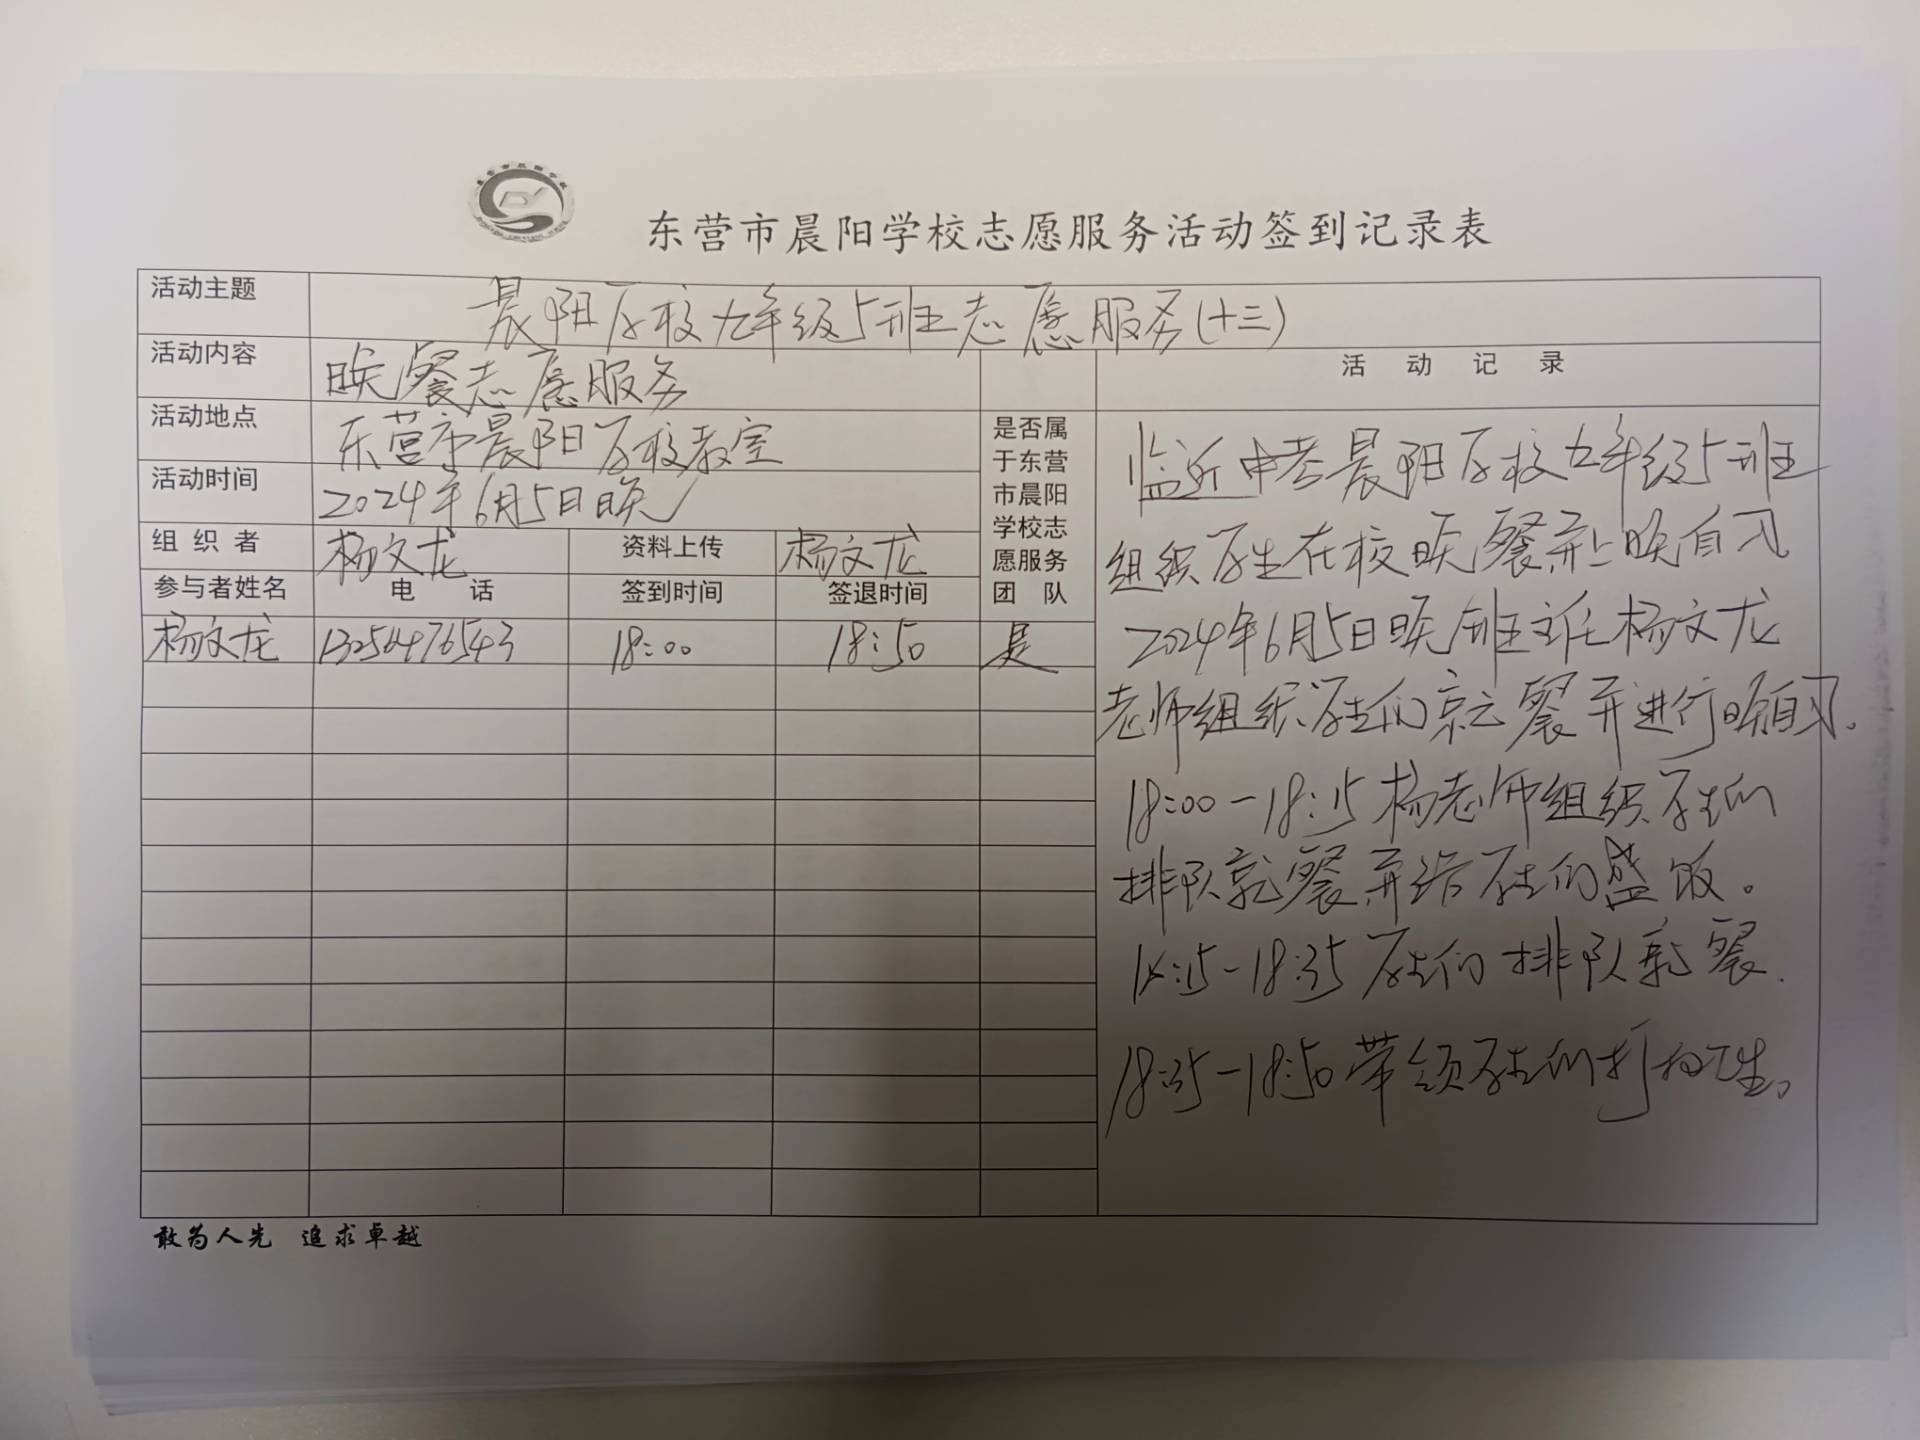 东营市晨阳学校志愿服务活动签到记录表
活动主题 晨阳学校九年级5班志愿服务(十三)
活动内容 晚餐志愿服务
活动地点 东营市晨阳学校教室
活动时间 2024年6月5日晚
组织者 杨文龙 资料上传 杨文龙
参与者姓名 电话 签到时间 签退时间
是否属
于东营
市晨阳
学校志
愿服务
团队
杨文龙 13256476543 18:00 18:50 是
活动记录
临近中考晨阳学校九年级5班
组织学生在校晚餐并上晚自习
2024年6月5日晚班主任杨文龙
老师组织学生们就餐并进行晚自习。
18:00-18:15杨老师组织学生们
排队就餐并给学生们盛饭。
18:15-18:35学生们排队就餐.
18:35-18:50带领学生们打扫卫生。
敢为人先 追求卓越